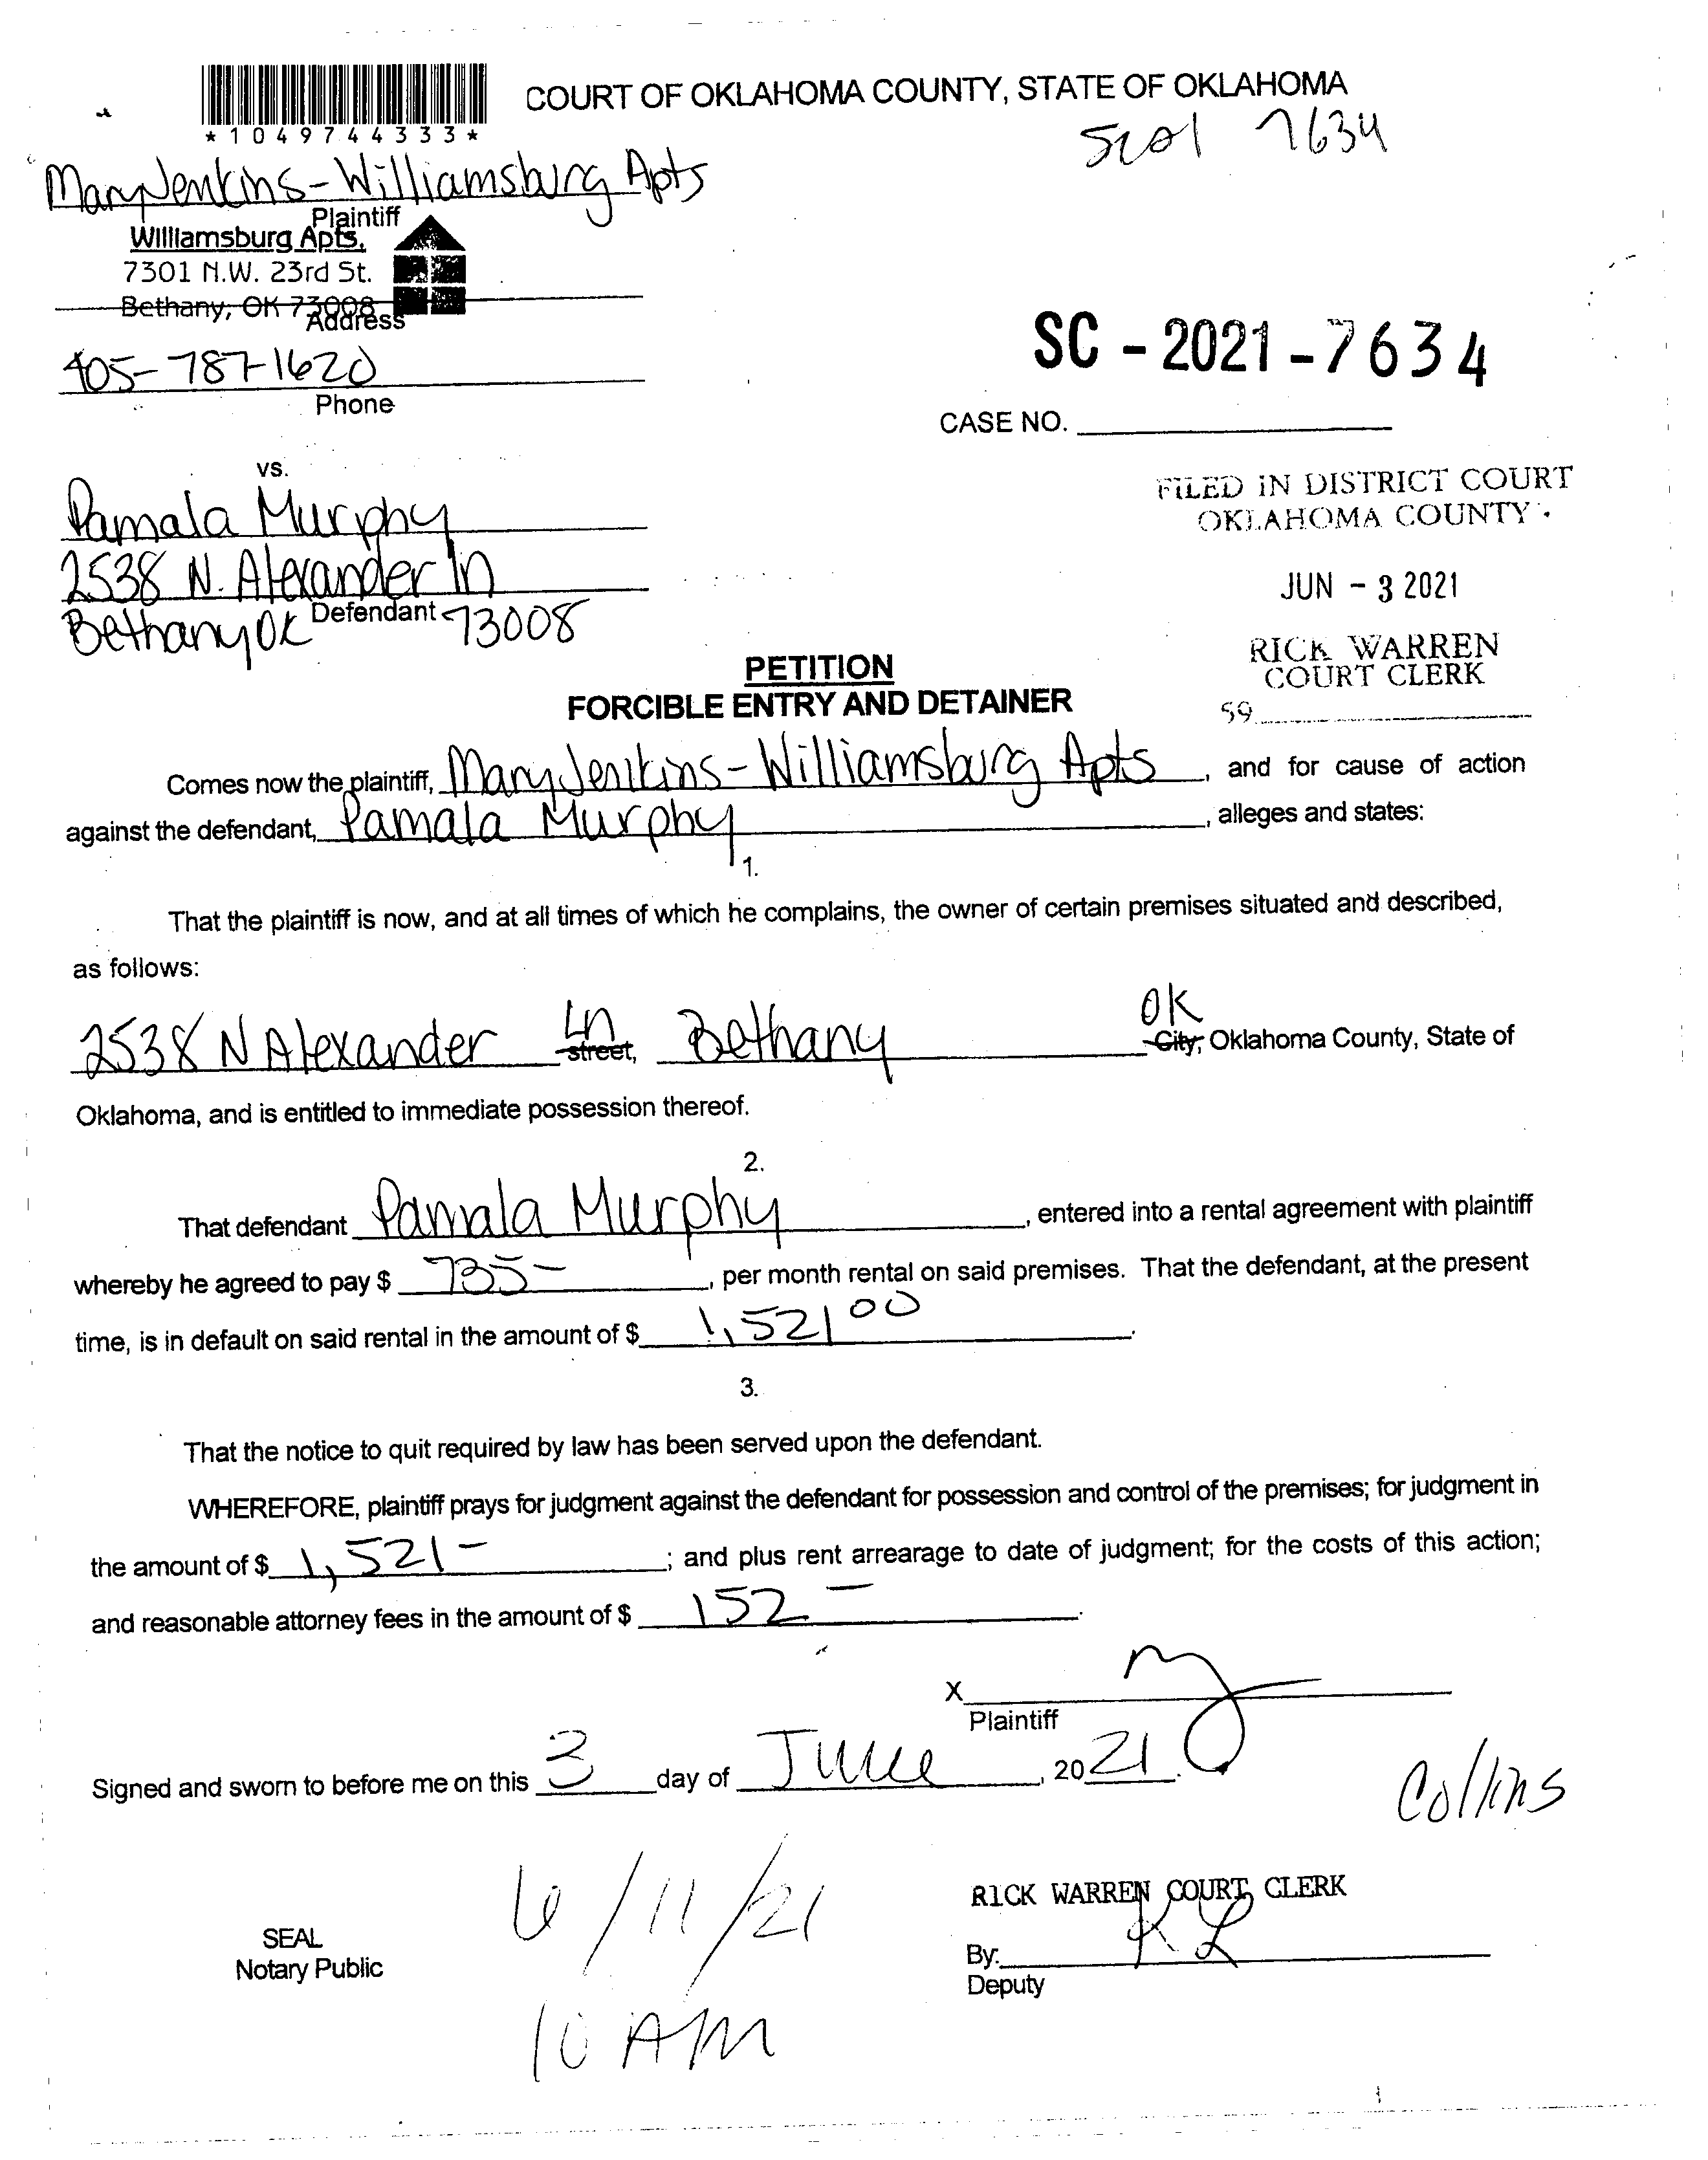 COURT OF OKLAHOMA COUNTY, STATE OF OKLAHOMA
*1049744333*
7634
Mary Jenkins-Williamsburg Apts
Plaintiff
Williamsburg Apts.
7301 N.W. 23rd St.
Bethany, OK 73008
Address
405-787-1620
Phone
SC - 2021 - 7634
CASE NO.
vs.
Pamala Murphy
2538 N. Alexander ln
Defendant
Bethany OK 73008
FILED IN DISTRICT COURT
OKLAHOMA COUNTY
JUN - 3 2021
RICK WARREN
COURT CLERK
59
PETITION
FORCIBLE ENTRY AND DETAINER
Comes now the plaintiff, Mary Jenkins-Williamsburg Apts, and for cause of action
against the defendant, Pamala Murphy, alleges and states:
1.
That the plaintiff is now, and at all times of which he complains, the owner of certain premises situated and described,
as follows:
2538 N Alexander Ln street, Bethany OK City, Oklahoma County, State of
Oklahoma, and is entitled to immediate possession thereof.
2.
That defendant Pamala Murphy, entered into a rental agreement with plaintiff
whereby he agreed to pay $ 735-, per month rental on said premises. That the defendant, at the present
time, is in default on said rental in the amount of $ 1,521 00.
3.
That the notice to quit required by law has been served upon the defendant.
WHEREFORE, plaintiff prays for judgment against the defendant for possession and control of the premises; for judgment in
the amount of $ 1,521-; and plus rent arrearage to date of judgment; for the costs of this action;
and reasonable attorney fees in the amount of $ 152-.
X
Plaintiff
Signed and sworn to before me on this 3 day of June, 2021.
Collins
6/11/21
10 AM
SEAL
Notary Public
RICK WARREN COURT CLERK
By: KL
Deputy